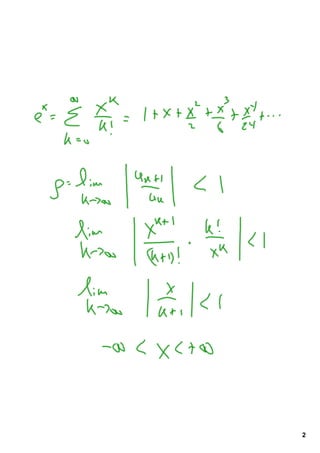 e^x = ∑_{k=0}^{∞} x^k/k! = 1 + x + x²/2 + x³/6 + x⁴/24 + ...
ρ = lim_{k→∞} |u_{k+1}/u_k| < 1
lim_{k→∞} |x^{k+1}/(k+1)! · k!/x^k| < 1
lim_{k→∞} |x/(k+1)| < 1
-∞ < x < +∞
2